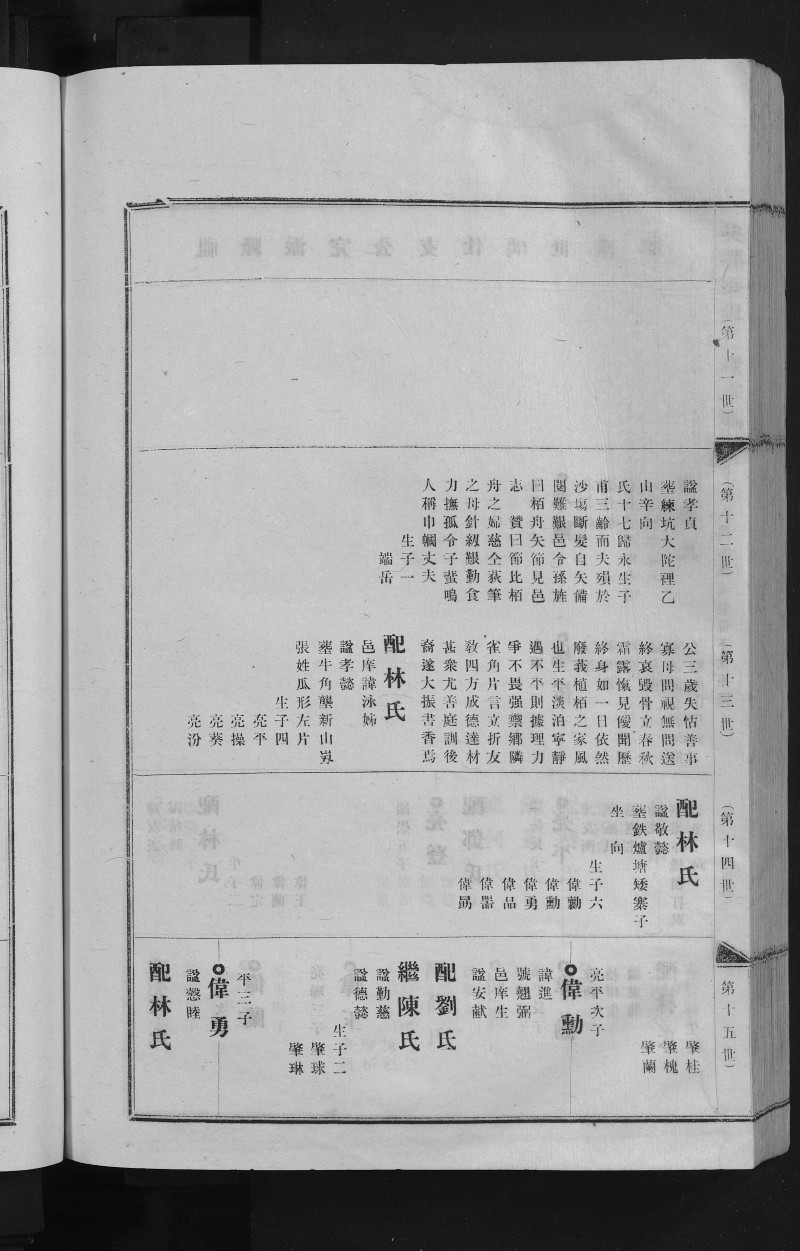 (第十一世)
(第十二世)
諡孝貞
塟練坑大陀裡乙
山辛向
氏十七歸永生子
甫三齡而夫殞於
沙塲斷髮自矢備
閱難艱邑令孫旌
曰栢舟矢節見邑
志　贊曰節比栢
舟之婦慈仝荻筆
之母針紉艱勤食
力撫孤令子蜚鳴
人稱巾幗丈夫
生子一
端岳
(第十三世)
公三歲失怙善事
寡母問視無間送
終哀毀骨立春秋
霜露愾見僾聞歷
終身如一日依然
廢莪植栢之家風
也生平淡泊寧靜
遇不平則據理力
爭不畏强禦鄉隣
雀角片言立折友
敎四方成德達材
甚衆尤善庭訓後
裔遂大振書香焉
配林氏
邑庠諱泳姊
諡孝懿
塟牛角壟新山
張姓瓜形左片
生子四
亮平
亮操
亮葵
亮汾
(第十四世)
配林氏
諡敬懿
塟鉄爐塘矮寨子
坐　向
生子六
偉勷
偉勳
偉勇
偉品
偉噐
偉勗
第十五世)
肇桂
肇槐
肇蘭
亮平次子
偉勳
諱進
號翹弼
邑庠生
諡安猷
配劉氏
繼陳氏
諡勤慈
諡德懿
生子二
肇球
肇琳
平三子
偉勇
諡慤睦
配林氏